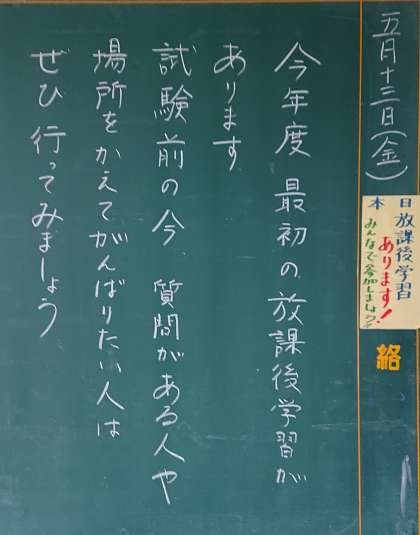 五月十三日(金)
本日放課後学習
あります!
みんなで参加しましょう
絡
今年度 最初の放課後学習が
あります
試験前の今 質問がある人や
場所をかえてがんばりたい人は
ぜひ 行ってみましょう